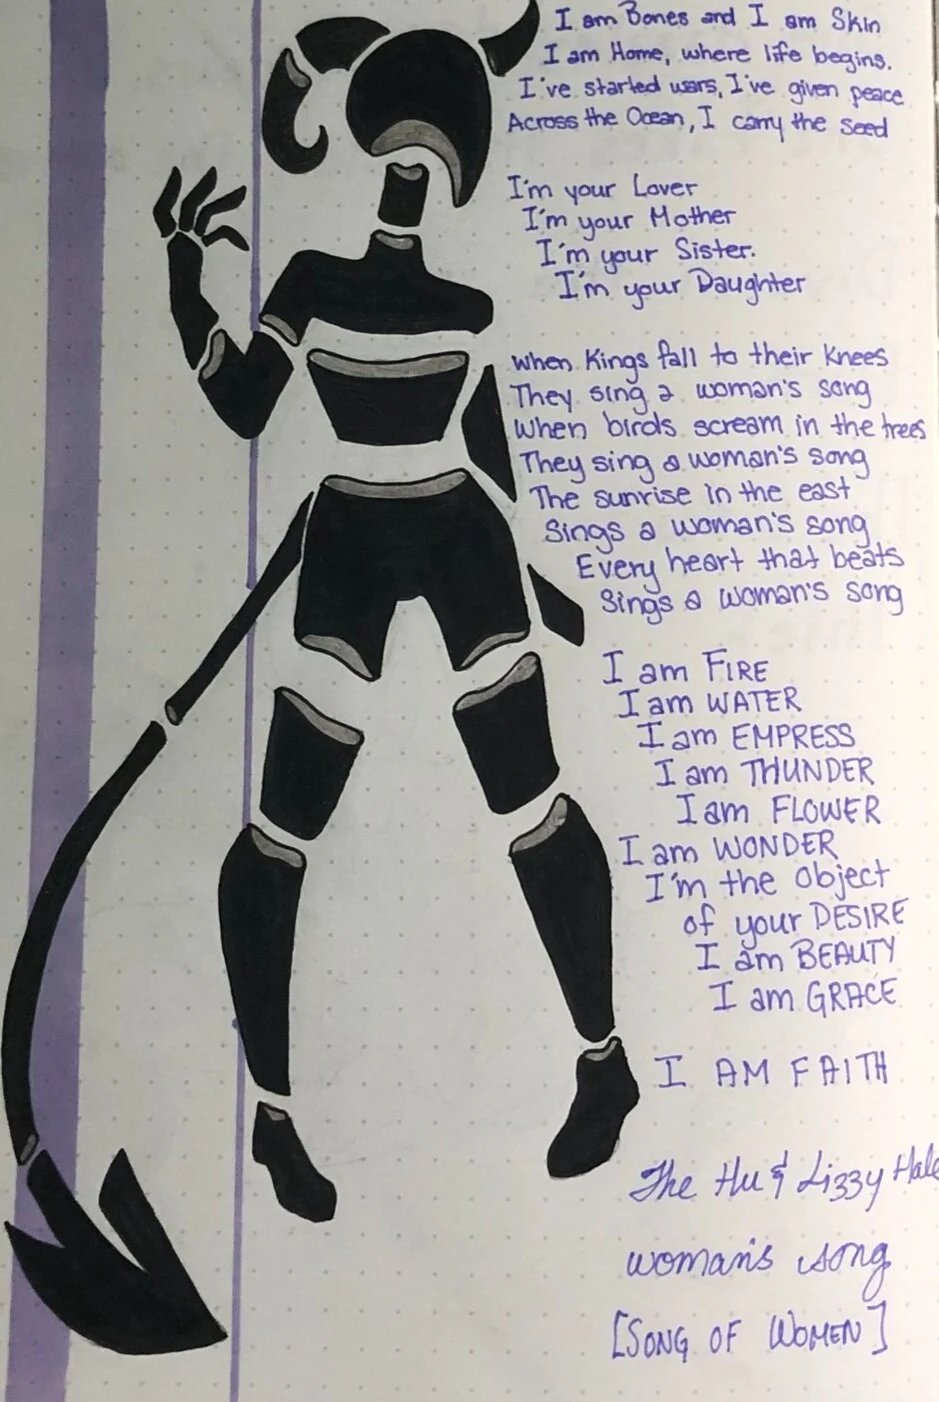 I am Bones and I am Skin
I am Home, where life begins.
I've started wars, I've given peace
Across the Ocean, I carry the seed
I'm your Lover
I'm your Mother
I'm your Sister.
I'm your Daughter
When Kings fall to their knees
They sing a woman's song
When birds scream in the trees
They sing a woman's song
The sunrise in the east
Sings a woman's song
Every heart that beats
Sings a woman's song
I am FIRE
I am WATER
I am EMPRESS
I am THUNDER
I am FLOWER
I am WONDER
I'm the object
of your DESIRE
I am BEAUTY
I am GRACE
I AM FAITH
The Hu & Lizzy Hale
woman's song
[SONG OF WOMEN]